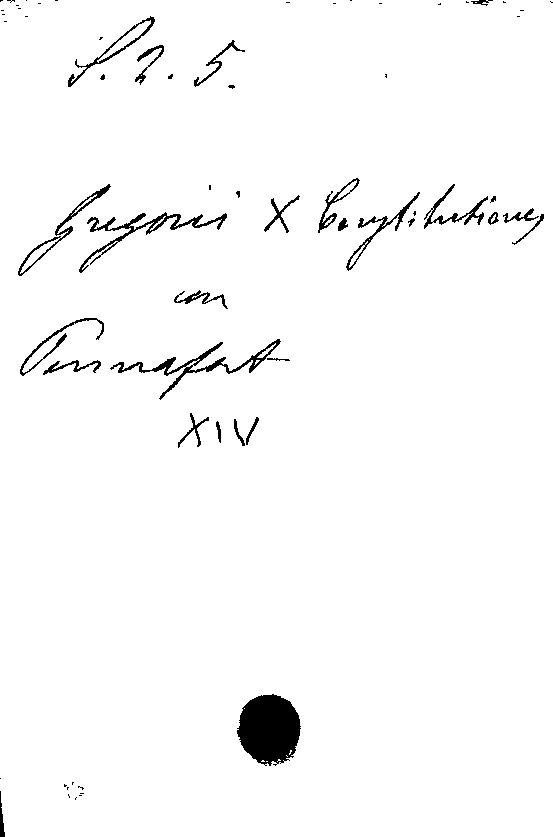 S. 2. 5.
Gregorii X Constitutiones
con
Pennafort
XIV